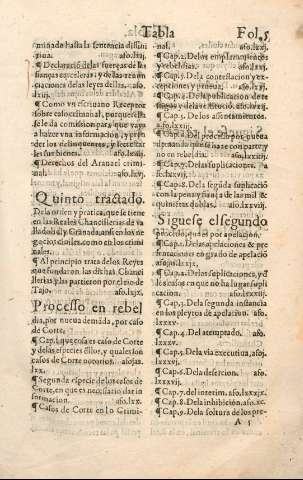 Tabla
Fol. 5
minada hasta la sentencia difini
tiua.
¶ Declaració de las fuerças de las
fianças carceleras, y de las renun
ciaciones de las leyes dellas. afo.
lxiij.
¶ Como vn escriuano Receptor
sobre caso criminal, por que se le
dela comision para que vaya
a hazer vna informacion, y pren
der los delinquentes, y secrestar
les sus bienes. afo.
¶ Derechos del Aranzel crimi-
nal.
Quinto tractado.
Dela orden y pratica, que se tiene
en las Reales Chancillerias de va
lladolid, y Granada, ansi en los ne
gocios ciuiles como en los crimi
nales.
¶ Al principio trata de los Reyes
que fundaron las dichas Chanci
llerias, y las partieron por el rio de
Tajo. afo. lxix.
Processo en rebel
dia, por nueua demãda, por caso
de Corte.
¶ Cap. 1. que cosa es caso de Corte
y delas especies ellos, y quales son
casos de Corte notorios. afojas.
lxx.
¶ Segunda especie de los casos de
Corte, en que es necesario dar in
formacion. afo. lxx.
¶ Casos de Corte en lo Crimi-
nal. afo. lxxj.
¶ Cap. 2. De los emplazamientos
y rebeldias. afo. lxxj.
¶ Cap. 3. Dela contestacion y ex
cepciones y prueua. afo. lxxij.
¶ Cap. 4. De la publicacion de te
stigos y dela restitució. afo. lxxiiij.
¶ Cap. 5. De los assentamientos.
afo. lxxviij.
¶ Cap. 7. Del processo por pre
sencia que se haze con parte y
no en rebeldia. afo.
lxxviij.
¶ Cap. 8. Dela segũda suplicació
con la pena y fiança de las mil &
quinientas doblas. afo. lxxix.
Siguese el segundo
processo, que es por apelacion.
¶ Cap. 1. Delas apelaciones & pre
sentaciones en grado de apelació
afojas lxxix.
¶ Cap. 2. Delas suplicaciones, y de
los casos en que no ha lugar supli
cacion. afo. lxxxiij.
¶ Cap. 3. Dela segunda instancia
en los pleytos de apelacion. afo.
lxxxv.
¶ Cap. 4. Del atemptado. afo.
lxxxv.
¶ Cap. 5. Dela via executiua, afoj.
lxxxvij.
¶ Cap. 6. Dela desercion. afo.
lxxxix.
¶ Cap. 7. del interim. afo. lxxxix.
¶ Cap. 8. Dela inhibición. afo. xc.
¶ Cap. 9. Dela soltura de los pre-
A 5